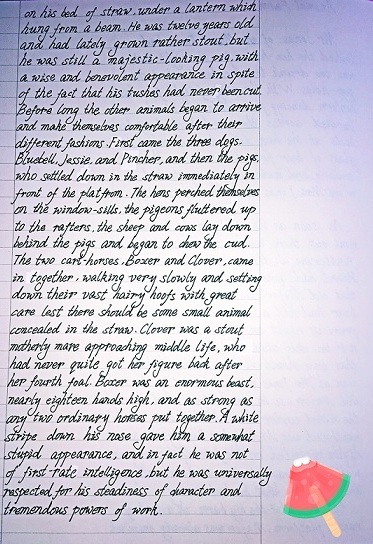 on his bed of straw, under a lantern which
hung from a beam. He was twelve years old
and had lately grown rather stout, but
he was still a majestic-looking pig, with
a wise and benevolent appearance in spite
of the fact that his tushes had never been cut.
Before long the other animals began to arrive
and make themselves comfortable after their
different fashions. First came the three dogs.
Bluebell, Jessie, and Pincher, and then the pigs,
who settled down in the straw immediately in
front of the platfrom. The hens perched themselves
on the window-sills, the pigeons fluttered up
to the rafters, the sheep and cows lay down
behind the pigs and began to chew the cud.
The two cart-horses, Boxer and Clover, came
in together, walking very slowly and setting
down their vast hairy hoofs with great
care lest there should be some small animal
concealed in the straw. Clover was a stout
motherly mare approaching middle life, who
had never quite got her figure back after
her fourth foal. Boxer was an enormous beast,
nearly eighteen hands high, and as strong as
any two ordinary horses put together. A white
stripe down his nose gave him a somewhat
stupid appearance, and in fact he was not
of first-rate intelligence, but he was universally
respected for his steadiness of character and
tremendous powers of work.